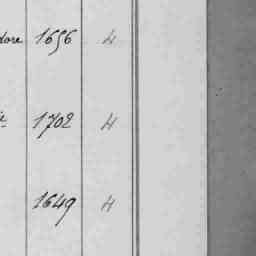 dore 1656 4
1702 4
1649 4